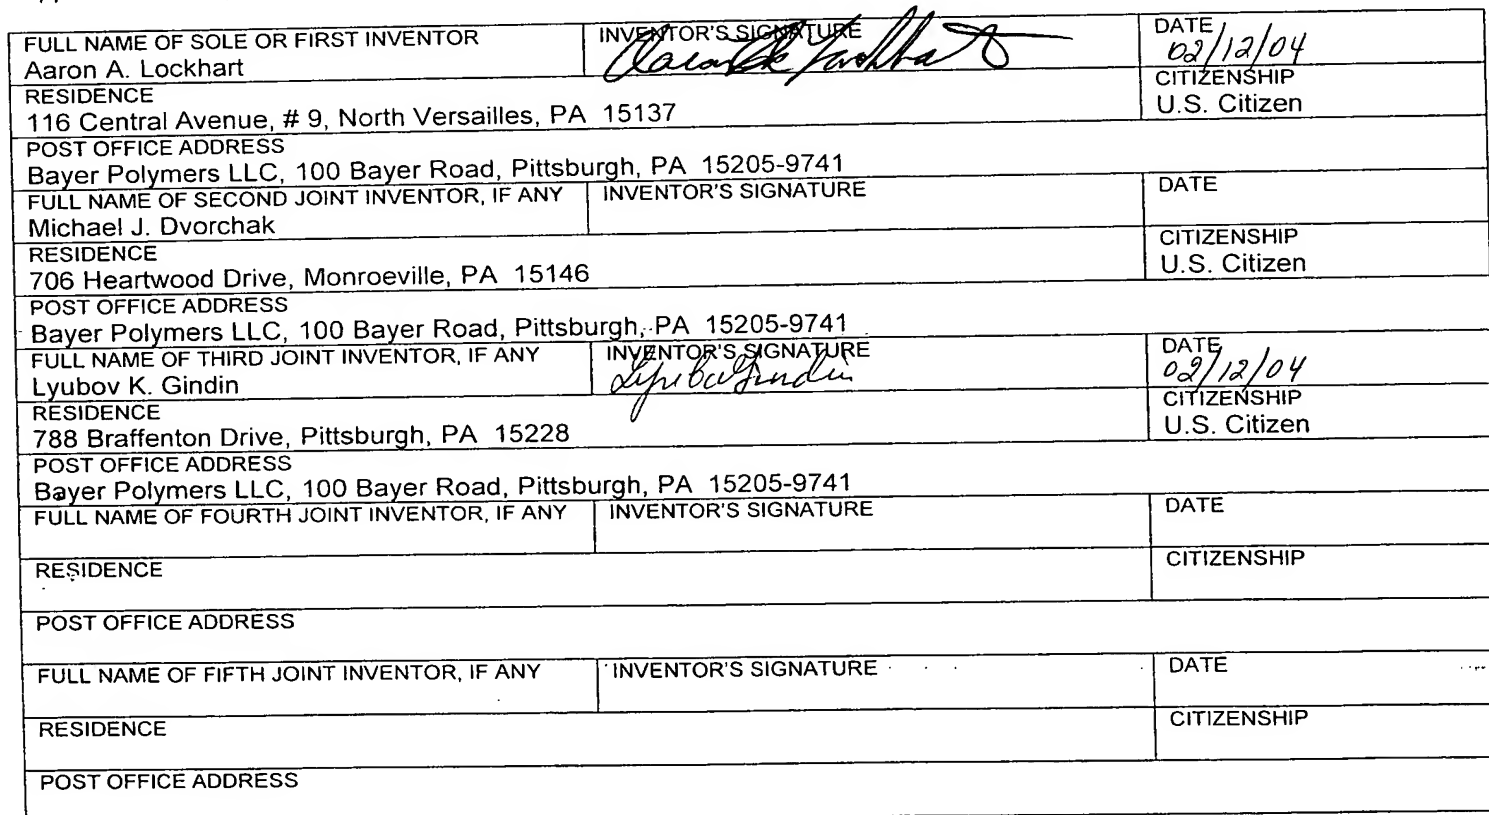 FULL NAME OF SOLE OR FIRST INVENTOR INVENTOR'S SIGNATURE DATE
Aaron A. Lockhart 02/12/04
RESIDENCE CITIZENSHIP
116 Central Avenue, # 9, North Versailles, PA 15137 U.S. Citizen
POST OFFICE ADDRESS
Bayer Polymers LLC, 100 Bayer Road, Pittsburgh, PA 15205-9741
FULL NAME OF SECOND JOINT INVENTOR, IF ANY INVENTOR'S SIGNATURE DATE
Michael J. Dvorchak
RESIDENCE CITIZENSHIP
706 Heartwood Drive, Monroeville, PA 15146 U.S. Citizen
POST OFFICE ADDRESS
Bayer Polymers LLC, 100 Bayer Road, Pittsburgh, PA 15205-9741
FULL NAME OF THIRD JOINT INVENTOR, IF ANY INVENTOR'S SIGNATURE DATE
Lyubov K. Gindin Lyuba Gindin 02/12/04
RESIDENCE CITIZENSHIP
788 Braffenton Drive, Pittsburgh, PA 15228 U.S. Citizen
POST OFFICE ADDRESS
Bayer Polymers LLC, 100 Bayer Road, Pittsburgh, PA 15205-9741
FULL NAME OF FOURTH JOINT INVENTOR, IF ANY INVENTOR'S SIGNATURE DATE
RESIDENCE CITIZENSHIP
POST OFFICE ADDRESS
FULL NAME OF FIFTH JOINT INVENTOR, IF ANY INVENTOR'S SIGNATURE DATE
RESIDENCE CITIZENSHIP
POST OFFICE ADDRESS